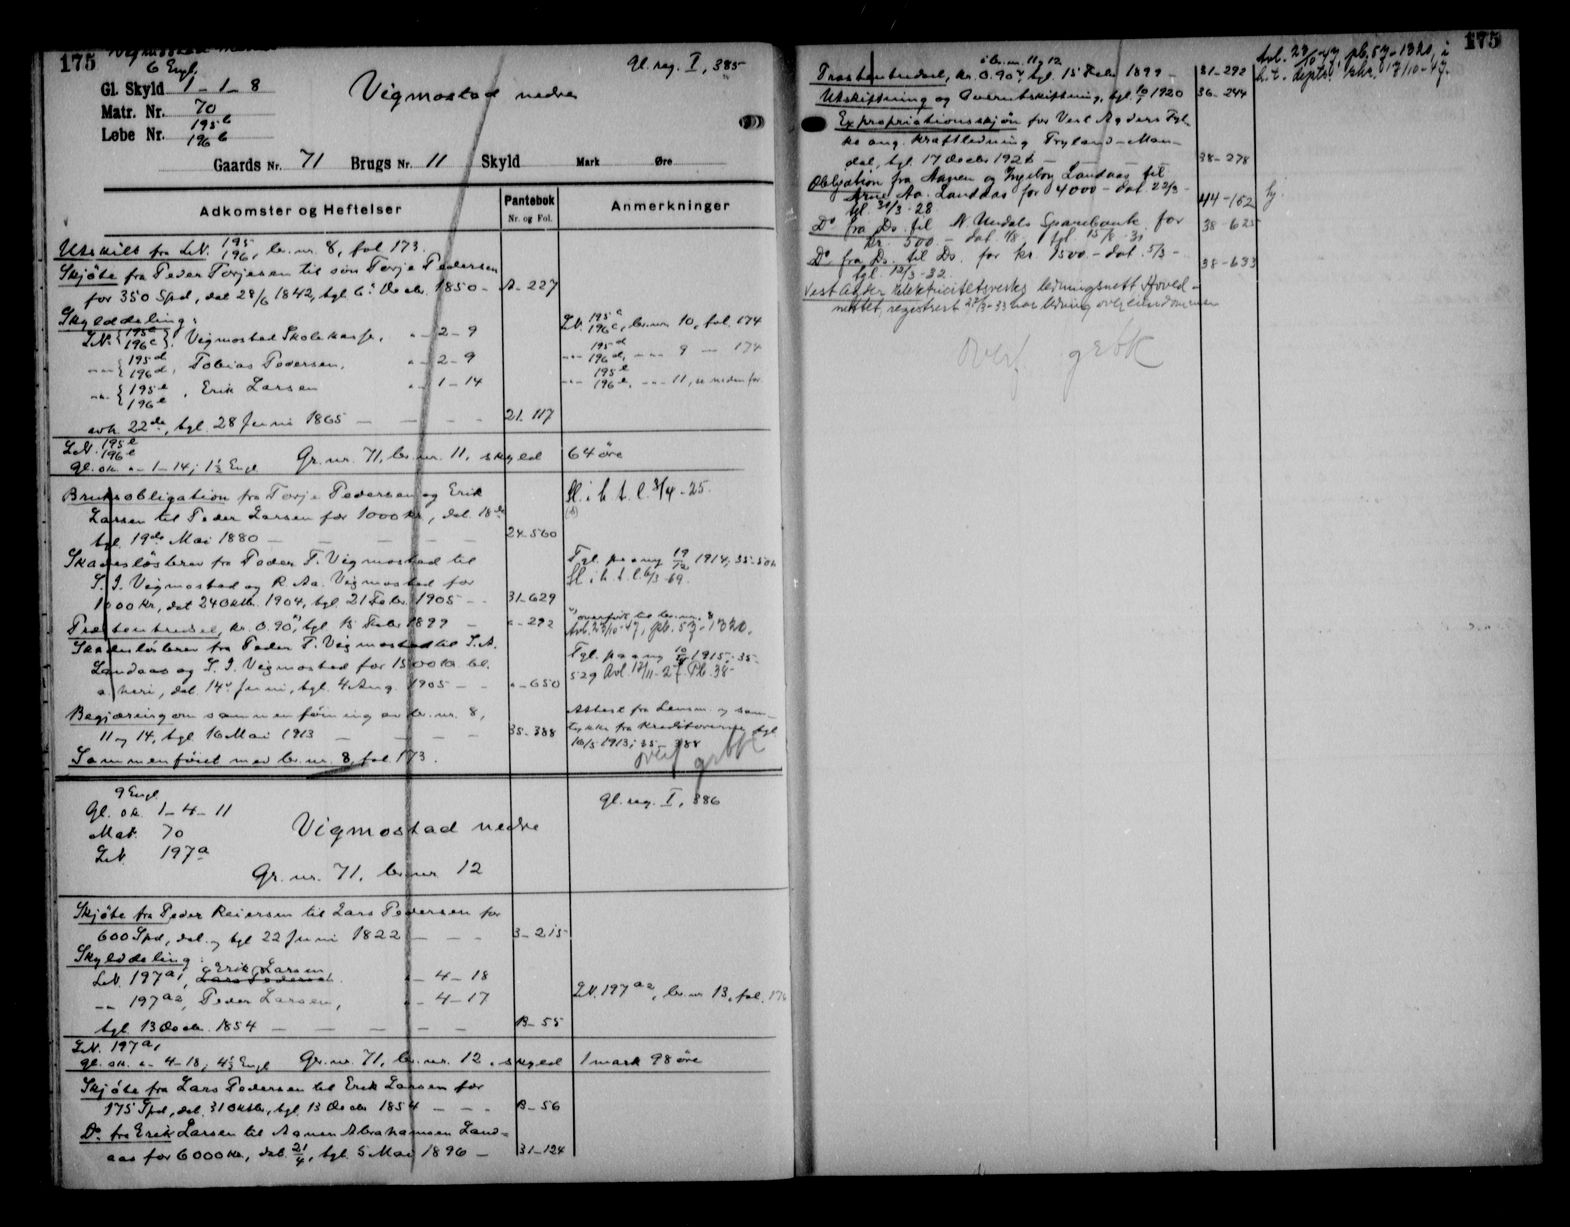 175
6 Engl.
Gl. Skyld 1-1-8
Matr. Nr. 70
Løbe Nr. 195b
196b
Vigmostad nedre
Gl. reg. I, 385
Gaards Nr. 71 Brugs Nr. 11 Skyld Mark Øre
Adkomster og Heftelser
Pantebok
Nr. og Fol.
Anmerkninger
Utskilt fra LN. 195/196, br.nr. 8, fol 173.
Skjöte fra Peder Torjesen til søn Torje Pedersen
for 350 Spd, dat 28/6 1842, tgl. 6. Decbr. 1850 - A-227
Skylddeling:
LN. {195c 196c}, Vigmostad Skolekasse, " - 2 - 9 LN. 195c 196c, br.nr. 10, fol. 174
-"- {195d 196d, Tobias Pedersen, " - 2 - 9 -"- 195d 196d, -"- 9 - 174
-"- {195e 196e, Erik Larsen " - 1 - 14 -"- 195e 196e, -"- 11, se nedenfor
avh. 22de, tgl. 28 Juni 1865 - - - - 21-117
LN. 195e 196e
gl. sk. " - 1 - 14; 1½ Engl Gr. nr. 71, br. nr. 11, skyld 64 öre
Bruksobligation fra Torje Pedersen og Erik
Larsen til Peder Larsen for 1000 kr, dat. 18de
tgl. 19de Mai 1880 - - - - 24-560
Sl. i h. t. l. 3/4-25.
Skadeslösbrev fra Peder T. Vigmostad til
S. I. Vigmostad og R. Aa. Vigmostad for
1000 Kr, dat 24 Oktbr. 1904, tgl 21 Febr 1905 - - 31-629
Tgl. paany 19/12 1914, 35-504
Sl. i h. t. l. 6/3-69.
Træbenbrudsel, kr. 0.90, tgl. 15 Febr 1899 - "-292
overfört til br.nr. 8
Avl. 23/10-47, pb. 57-1320.
Skadeslösbrev fra Peder T. Vigmostad til S. A.
Landaas og S. I. Vigmostad for 1500 Kr. bl.
a. heri, dat. 14de Juni, tgl. 4 Aug. 1905 - - "-650
Tgl. paany 10/ 1915, 35-
529 Avl. 12/11-27 Pb. 38-
Begjæring om sammenföining av br. nr. 8,
11 og 14, tgl. 16 Mai 1913 - - - - 35-388
Attest fra Lensm. og sam-
tykke fra Kreditorerne tgl
16/5 1913, i 35-388
Sammenföiet med br. nr. 8, fol 173.
overf grbk
9 Engl
Gl. sk. 1-4-11
Mat. 70
LN. 197a
Vigmostad nedre
Gl. reg. I, 386
Gr. nr. 71, br. nr 12
Skjöte fra Peder Reiersen til Lars Pedersen for
600 Spd, dat. og tgl 22 Juni 1822 - - - 3-215
Skylddeling:
LN. 197a1, Erik Larsen " - 4 - 18
Lars Pedersen
-"- 197a2, Peder Larsen, " - 4 - 17 LN. 197a2, br. nr 13, fol. 176
tgl. 13 Decbr. 1854 - - - - - B-55
LN. 197a1
gl. sk. " - 4 - 18; 4½ Engl Gr. nr. 71, br. nr. 12, skyld 1 mark 98 öre
Skjöte fra Lars Pedersen til Erik Larsen for
175 Spd, dat. 31 Oktbr, tgl. 13 Decbr 1854 - - - B-56
Do. fra Erik Larsen til Aanen Abrahamsen Land-
aas for 6000 Kr, dat. 21/4, tgl. 5 Mai 1896 - 31-124
175
i br. nr. 11 og 12
kr. 0.90, tgl. 15 Febr 1899 - 31-292
Avl. 23/10-47, pb. 57-1320, i
h. t. 17/10-47.
Utskiftning og Overutskiftning, tgl. 1920 36-244
Expropriationsskjøn for Vest Agders Fyl-
ke ang. kraftledning Tryland-Man-
dal, tgl. 17 Decbr 1926 - - - 38-278
Obligation fra Aanen og Ingeborg Landaas til
Arne Aa. Landaas for 4000 - dat 22/3 -
tgl. 31/3-28 44-162
Do fra Do. til N. Undals Sparebank for
kr. 500 - dat. 1/8, tgl. 15/8-31 38-625
Do fra Do. til Do. for kr. 1500 - dat. 5/3 -
tgl. 12/3-32 38-633
Vest Agder Elektricitetsverks ledningsnett Hoved-
nettet, registrert 22/3-33 har ledning over eiendommen
overf grbk